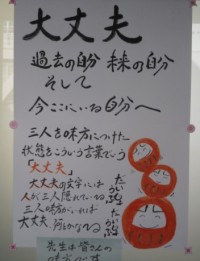 大丈夫
過去の自分 未来の自分
そして
今ここにいる自分へ
三人を味方につけた
状態をこういう言葉でいう
「大丈夫」
大丈夫の文字には
人が三人隠れている。
三人味方がいれば
大丈夫、何とかなる
だいじょうぶ
だいじょうぶ
先生は皆さんの
味方です